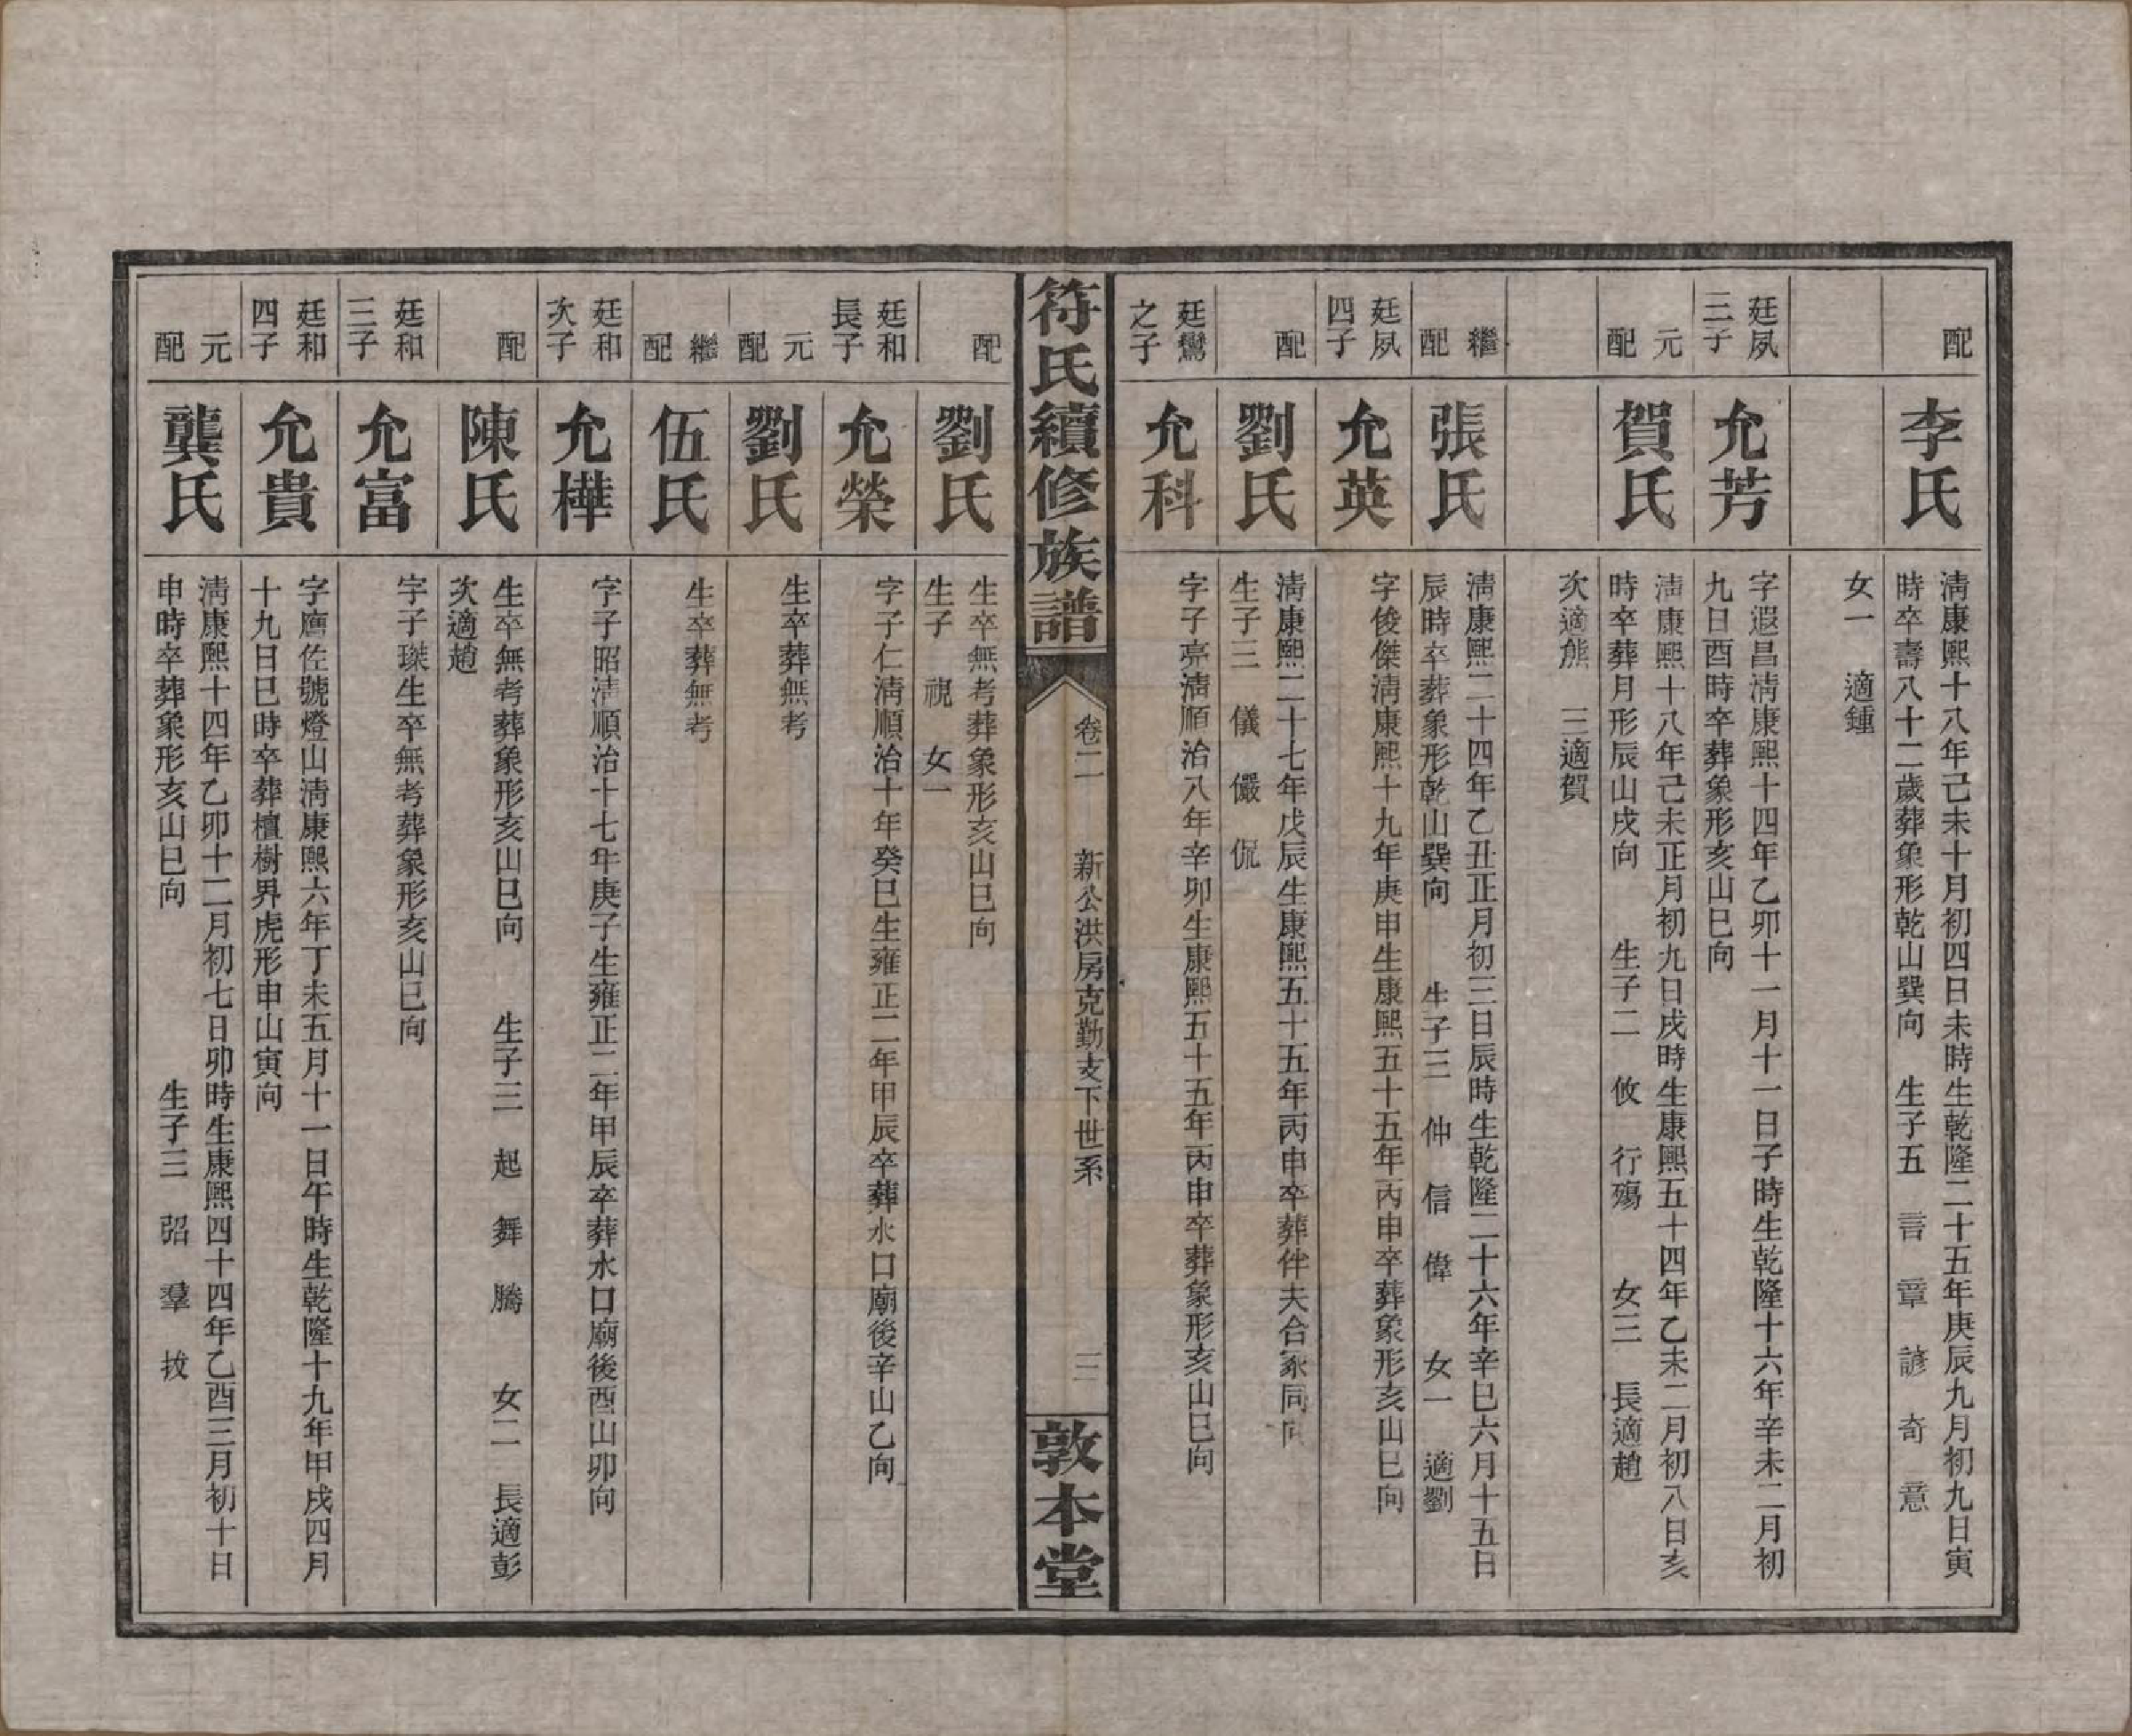 配
李氏
淸康熙十八年己未十月初四日未時生乾隆二十五年庚辰九月初九日寅
時卒壽八十二歲葬象形乾山巽向　生子五　言　章　諺　奇　意
女一　適鍾
廷夙
三子
允芳
字遐昌淸康熙十四年乙卯十一月十一日子時生乾隆十六年辛未二月初
九日酉時卒葬象形亥山巳向
元
配
賀氏
淸康熙十八年己未正月初九日戌時生康熙五十四年乙未二月初八日亥
時卒葬月形辰山戌向　生子二　攸　行殤　女三　長適趙
次適熊　三適賀
繼
配
張氏
淸康熙二十四年乙丑正月初三日辰時生乾隆二十六年辛巳六月十五日
辰時卒葬象形乾山巽向　生子三　仲　信　偉　女一　適劉
廷夙
四子
允英
字俊傑淸康熙十九年庚申生康熙五十五年丙申卒葬象形亥山巳向
配
劉氏
淸康熙二十七年戊辰生康熙五十五年丙申卒葬伴夫合冢同向
生子三　儀　儼　侃
廷鸞
之子
允科
字子亮淸順治八年辛卯生康熙五十五年丙申卒葬象形亥山巳向
符氏續修族譜
卷二　新公洪房克勤支下世系
三
敦本堂
配
劉氏
生卒無考葬象形亥山巳向
生子　視　女一
廷和
長子
允榮
字子仁淸順治十年癸巳生雍正二年甲辰卒葬水口廟後辛山乙向
元
配
劉氏
生卒葬無考
繼
配
伍氏
生卒葬無考
廷和
次子
允樺
字子昭淸順治十七年庚子生雍正二年甲辰卒葬水口廟後酉山卯向
配
陳氏
生卒無考葬象形亥山巳向　生子三　起　舞　騰　女二　長適彭
次適趙
廷和
三子
允富
字子琛生卒無考葬象形亥山巳向
廷和
四子
允貴
字鷹佐號燈山淸康熙六年丁未五月十一日午時生乾隆十九年甲戌四月
十九日巳時卒葬檀樹界虎形申山寅向
元
配
龔氏
淸康熙十四年乙卯十二月初七日卯時生康熙四十四年乙酉三月初十日
申時卒葬象形亥山巳向　生子三　弨　羣　拔